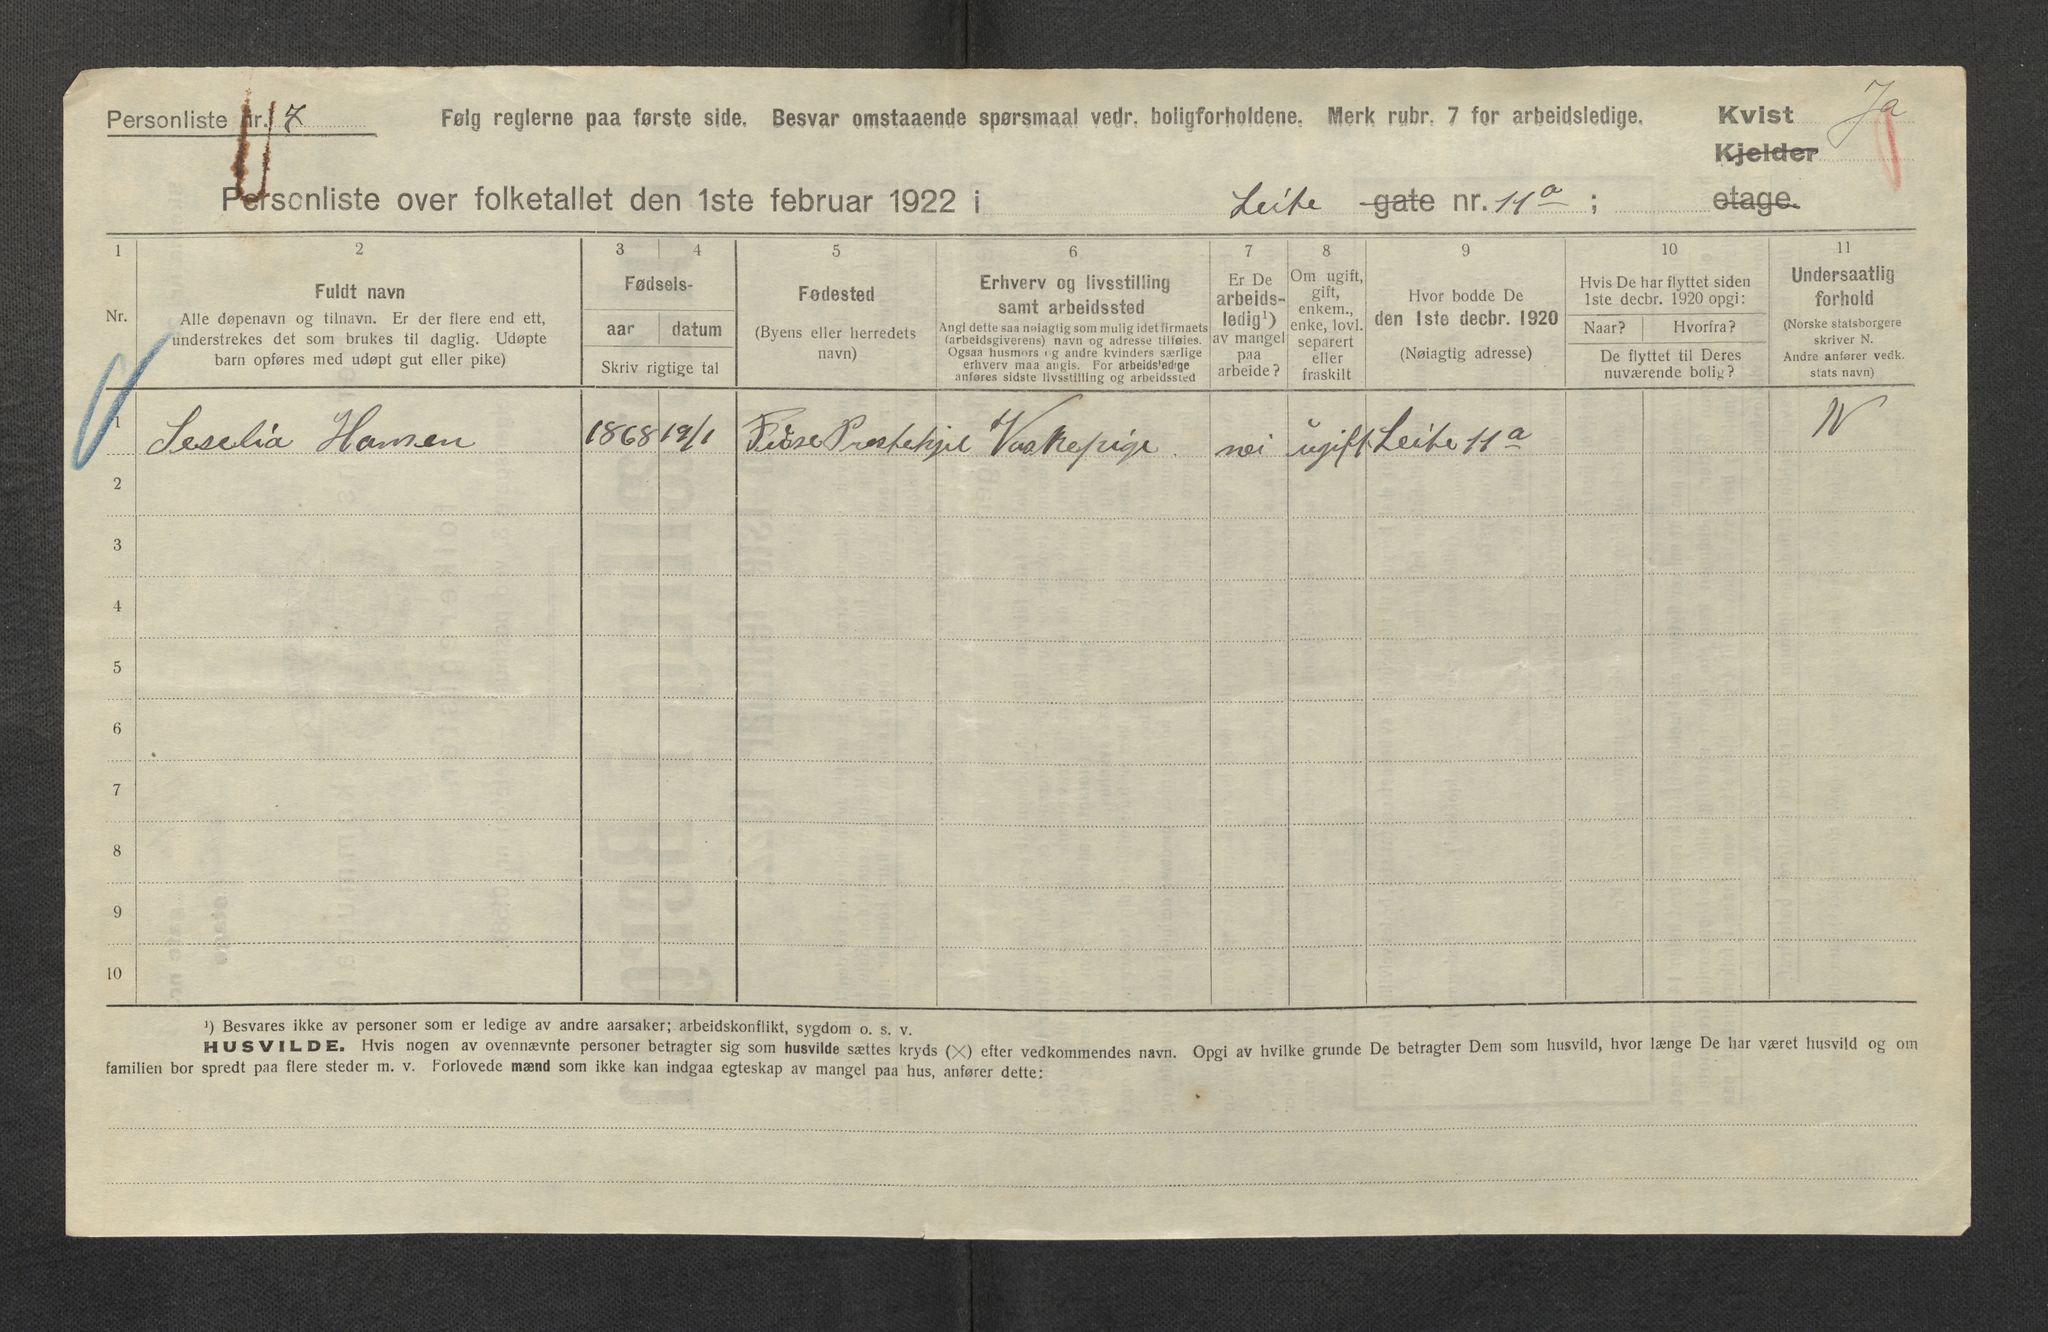 Personliste nr. 7
Følg reglerne paa første side. Besvar omstaaende spørsmaal vedr. boligforholdene. Merk rubr. 7 for arbeidsledige.
Kvist Ja
Kjelder
Personliste over folketallet den 1ste februar 1922 i Leite gate nr. 11a ; etage.
1 2 3 4 5 6 7 8 9 10 11
Nr.
Fuldt navn
Alle døpenavn og tilnavn. Er der flere end ett,
understrekes det som brukes til daglig. Udøpte
barn opføres med udøpt gut eller pike)
Fødsels-
aar datum
Skriv rigtige tal
Fødested
(Byens eller herredets
navn)
Erhverv og livsstilling
samt arbeidssted
Angi dette saa nøiagtig som mulig idet firmaets
(arbeidsgiverens) navn og adresse tilføies.
Ogsaa husmors og andre kvinders særlige
erhverv maa angis. For arbeidsledige
anføres sidste livsstilling og arbeidssted
Er De
arbeids-
ledig¹)
av mangel
paa
arbeide?
Om ugift,
gift,
enkem.,
enke, lovl.
separert
eller
fraskilt
Hvor bodde De
den 1ste decbr. 1920
(Nøiagtig adresse)
Hvis De har flyttet siden
1ste decbr. 1920 opgi:
Naar? Hvorfra?
De flyttet til Deres
nuværende bolig?
Undersaatlig
forhold
(Norske statsborgere
skriver N.
Andre anfører vedk.
stats navn)
1 Seselia Hansen 1868 19/1 Prestekjel Vaskepige nei ugift Leite 11a N
2
3
4
5
6
7
8
9
10
¹) Besvares ikke av personer som er ledige av andre aarsaker; arbeidskonflikt, sygdom o. s. v.
HUSVILDE. Hvis nogen av ovennævnte personer betragter sig som husvilde sættes kryds (×) efter vedkommendes navn. Opgi av hvilke grunde De betragter Dem som husvild, hvor længe De har været husvild og om
familien bor spredt paa flere steder m. v. Forlovede mænd som ikke kan indgaa egteskap av mangel paa hus, anfører dette: